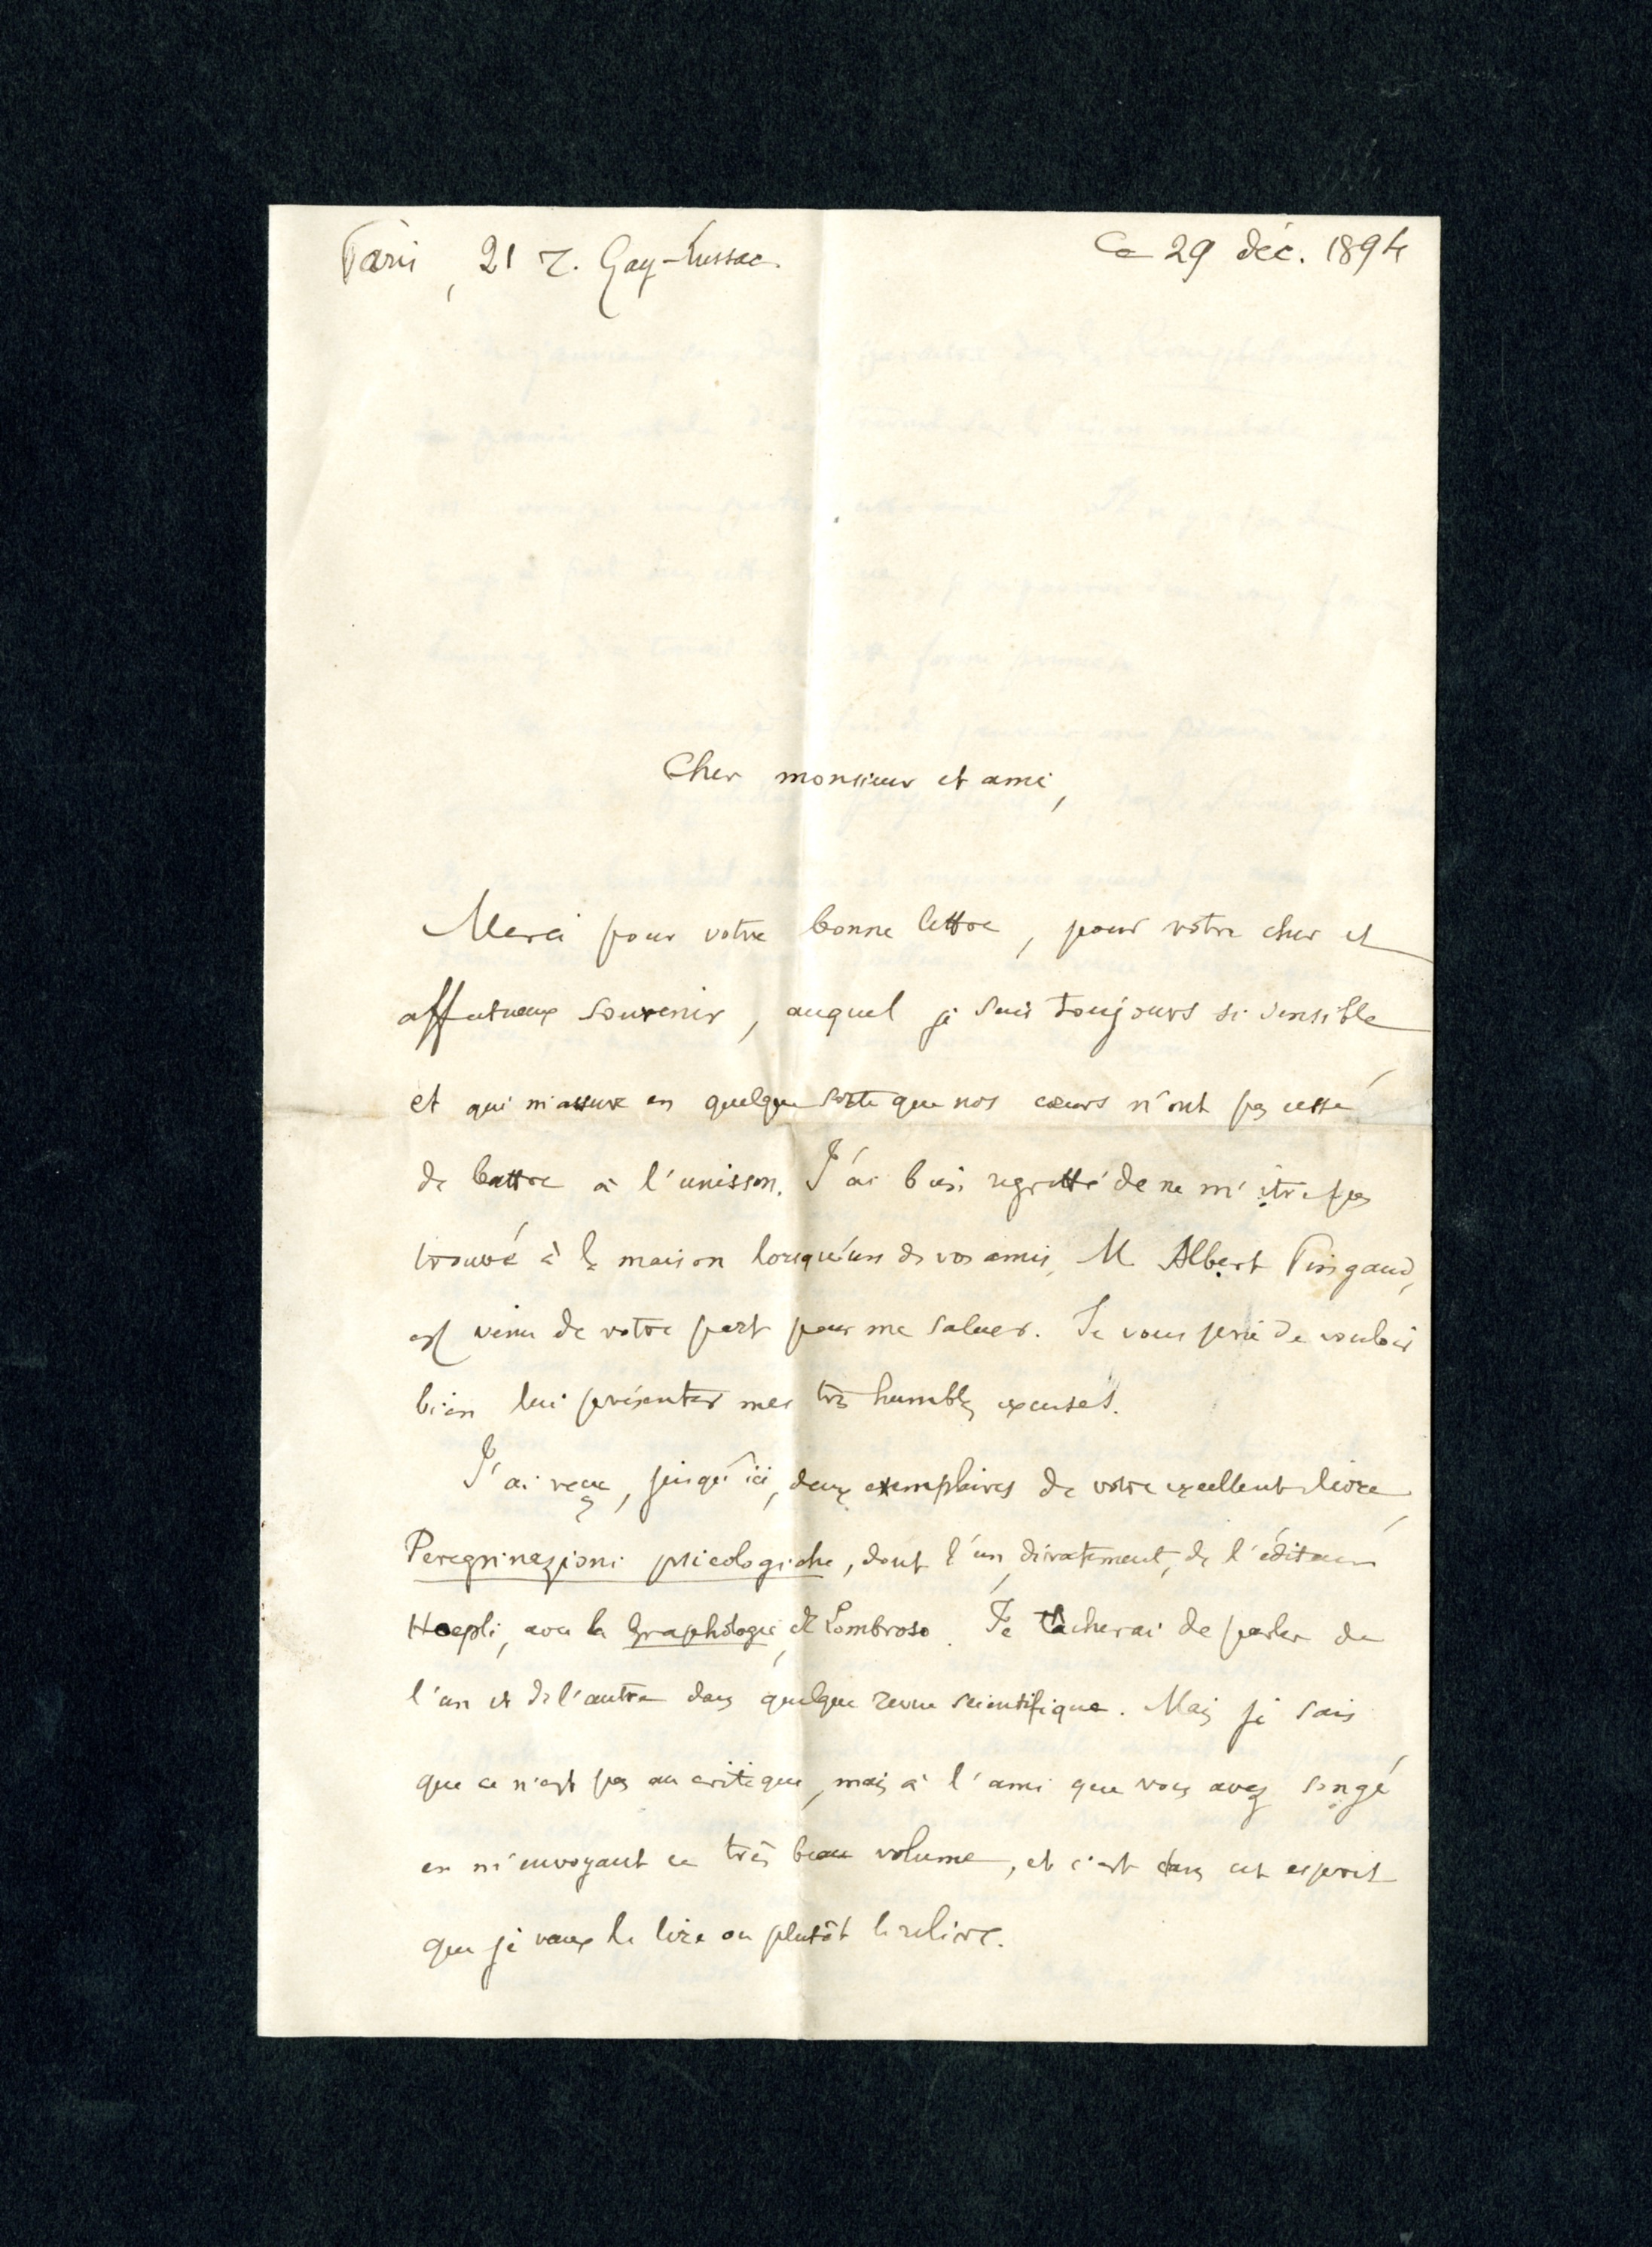 Paris, 21 r. Gay-Lussac.
Ce 29 déc. 1894
Cher monsieur et ami,
Merci pour votre bonne lettre, pour votre cher et
affectueux souvenir, auquel je suis toujours si sensible
et qui m'assure en quelque sorte que nos cœurs n'ont pas cessé
de battre à l'unisson. J'ai bien regretté de ne m'être pas
trouvé à la maison lorsqu'un de vos amis, M. Albert Pingaud,
est venu de votre part pour me saluer. Je vous prie de vouloir
bien lui présenter mes très humbles excuses.
J'ai reçu, jusqu'ici, deux exemplaires de votre excellent livre,
Peregrinazioni psicologiche, dont l'un, directement, de l'éditeur
Hoepli, avec la Graphologie de Lombroso. Je tâcherai de parler de
l'un et de l'autre dans quelque revue scientifique. Mais je sais
que ce n'est pas au critique, mais à l'ami que vous avez songé
en m'envoyant ce très beau volume, et c'est dans cet esprit
que je veux le lire ou plutôt le relire.